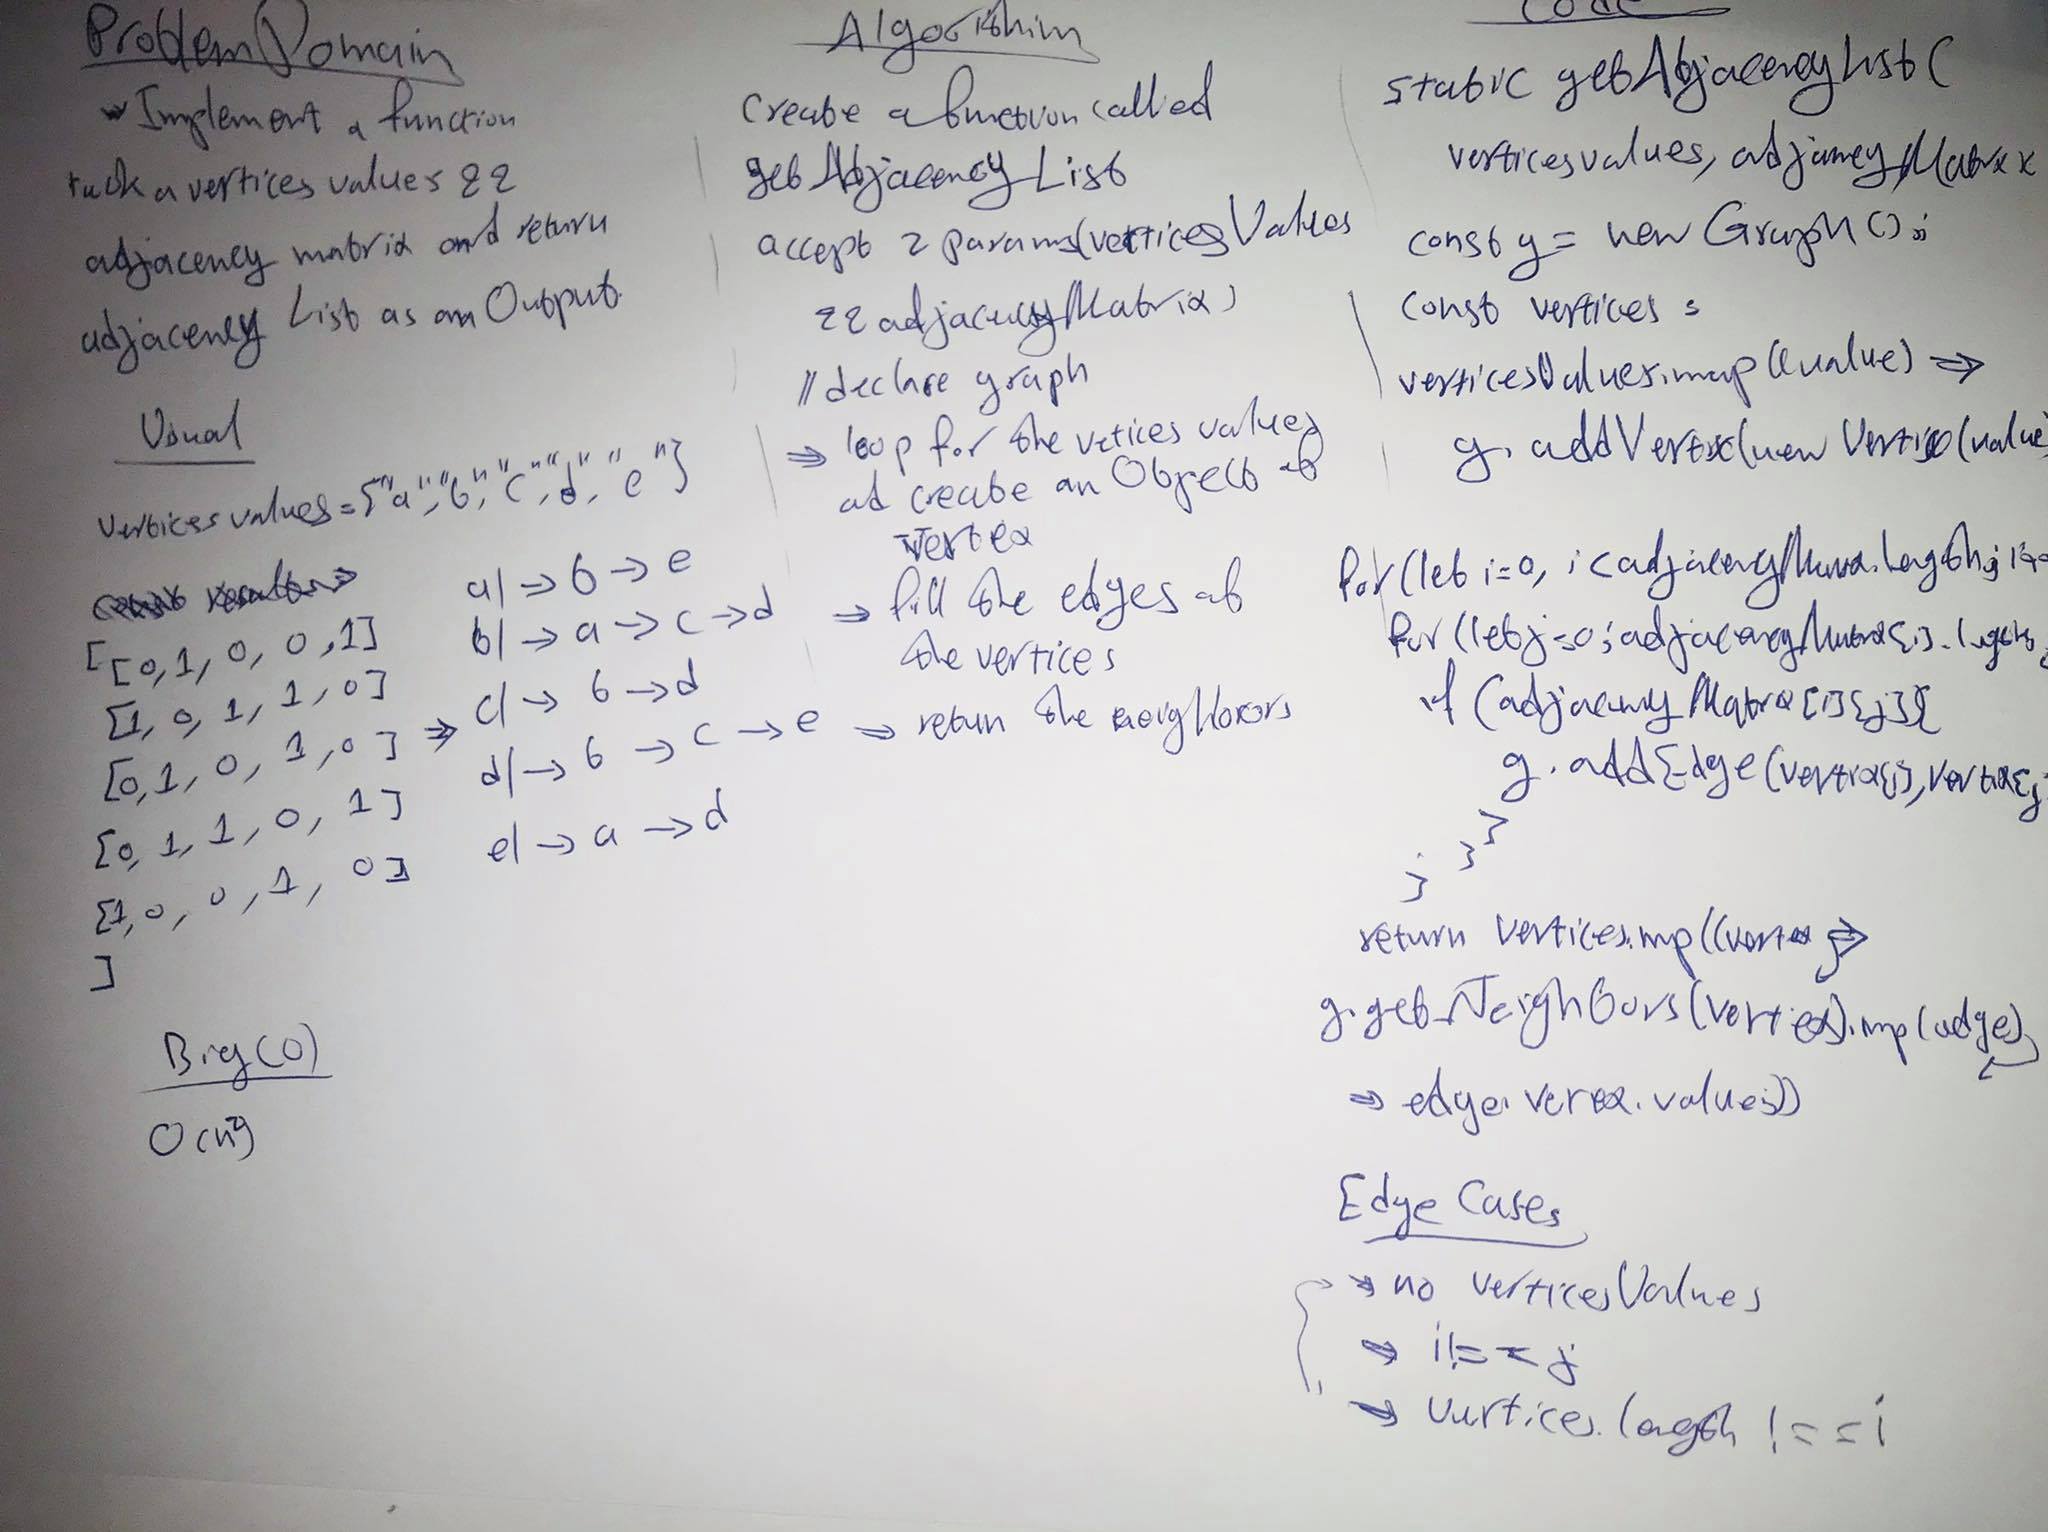 Problem Domain
→ Implement a function
tack a vertices values &&
adjacency matrix and return
adjacency List as an Output.
Visual
Vertices values = ["a","b","c","d","e"]
[[0,1,0,0,1]
[1,0,1,1,0]
[0,1,0,1,0]
[0,1,1,0,1]
[1,0,0,1,0]
]
⇒
a| → b → e
b| → a → c → d
c| → b → d
d| → b → c → e
e| → a → d
Big(O)
O(n²)
Algorithim
Create a function called
get Adjacency List
accept 2 params(verticesValues
&& adjacencyMatrix)
// declare graph
⇒ loop for the vetices values
ad create an Object of
Vertex
⇒ fill the edges of
the vertices
⇒ return the neighbors
Code
static getAdjacencyList(
verticesvalues, adjacencyMatrix
const g = new Graph();
const vertices =
verticesValues.map((value) ⇒
g.addVertex(new Vertex(value
for(let i=0, i<adjacencyMatrix.length; i++
for(let j=0; adjacencyMatrix[i].length;
if (adjacencyMatrix[i][j]{
g.addEdge(vertex[i], vertex[j]
}
}
}
return vertices.mp((vertex) ⇒
g.getNeighbours(vertex).mp(edge)
⇒ edge.verex.values))
Edge Cases
→ no verticesValues
→ i!==j
→ vertices.length !==i